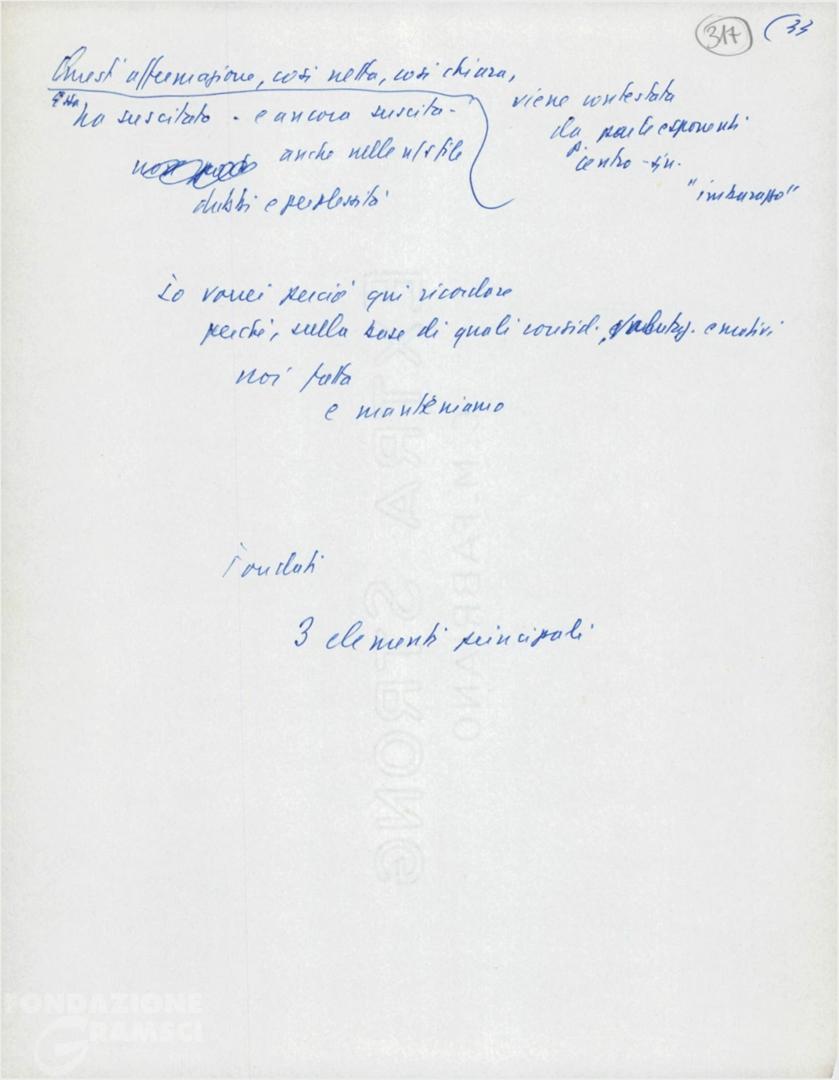 317 (33
Quest'affermazione, così netta, così chiara,
Essa
ha suscitato - e ancora suscita -
anche nelle n/s file
dubbi e perplessità
viene contestata
da parte esponenti
p. centro-sin.
"imbarazzo"
Io vorrei perciò qui ricordare
perché, sulla base di quali consid., valutaz. e motivi
noi fatta
e manteniamo
Fondati
3 elementi principali
EXTRA STRONG
M. FABRIANO
FONDAZIONE
GRAMSCI